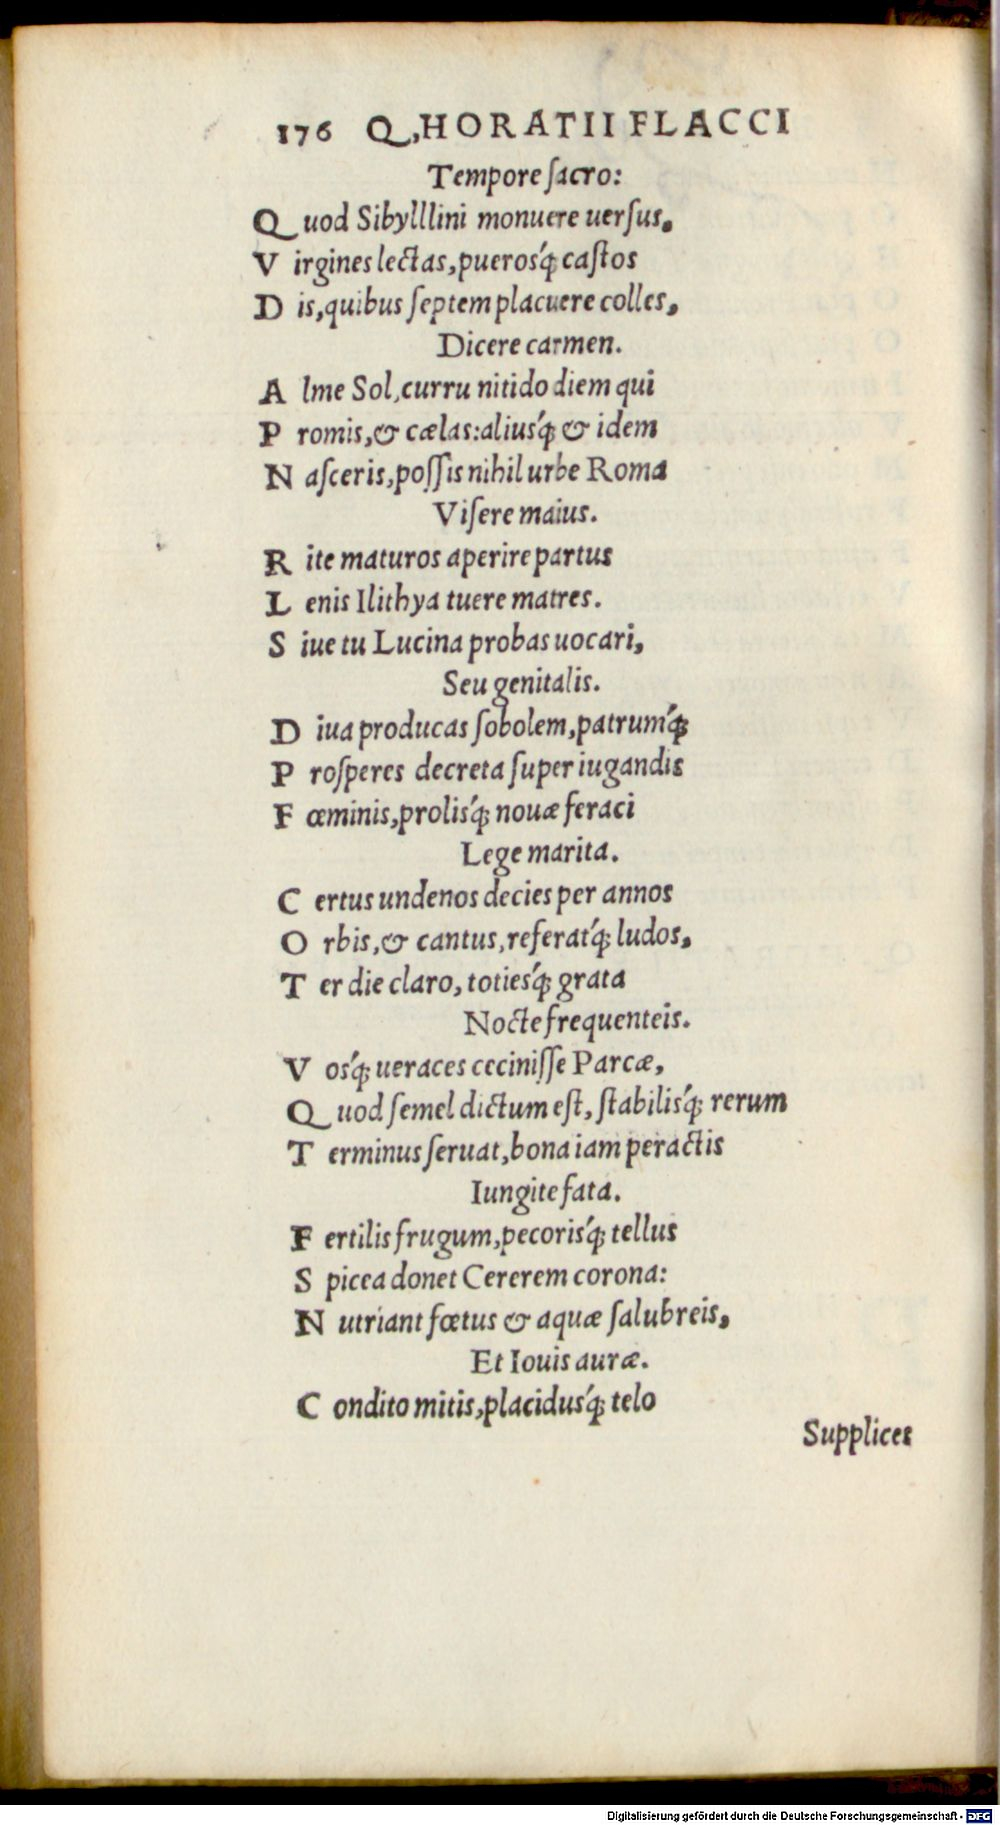 176 Q. HORATII FLACCI
Tempore ſacro:
Quod Sibylllini monuere uerſus,
Virgines lectas, pueroſq́; caſtos
Dis, quibus ſeptem placuere colles,
Dicere carmen.
Alme Sol, curru nitido diem qui
Promis, & cælas: aliuſq́; & idem
Naſceris, poſſis nihil urbe Roma
Viſere maius.
Rite maturos aperire partus
Lenis Ilithya tuere matres.
Siue tu Lucina probas uocari,
Seu genitalis.
Diua producas ſobolem, patrumq́;
Proſperes decreta ſuper iugandis
Fœminis, proliſq́; nouæ feraci
Lege marita.
Certus undenos decies per annos
Orbis, & cantus, referatq́; ludos,
Ter die claro, totieſq́; grata
Nocte frequenteis.
Voſq́; ueraces ceciniſſe Parcæ,
Quod ſemel dictum eſt, ſtabiliſq́; rerum
Terminus ſeruat, bona iam peractis
Iungite fata.
Fertilis frugum, pecoriſq́; tellus
Spicea donet Cererem corona:
Nutriant fœtus & aquæ ſalubreis,
Et Iouis auræ.
Condito mitis, placiduſq́; telo
Supplices
Digitalisierung gefördert durch die Deutsche Forschungsgemeinschaft - DFG